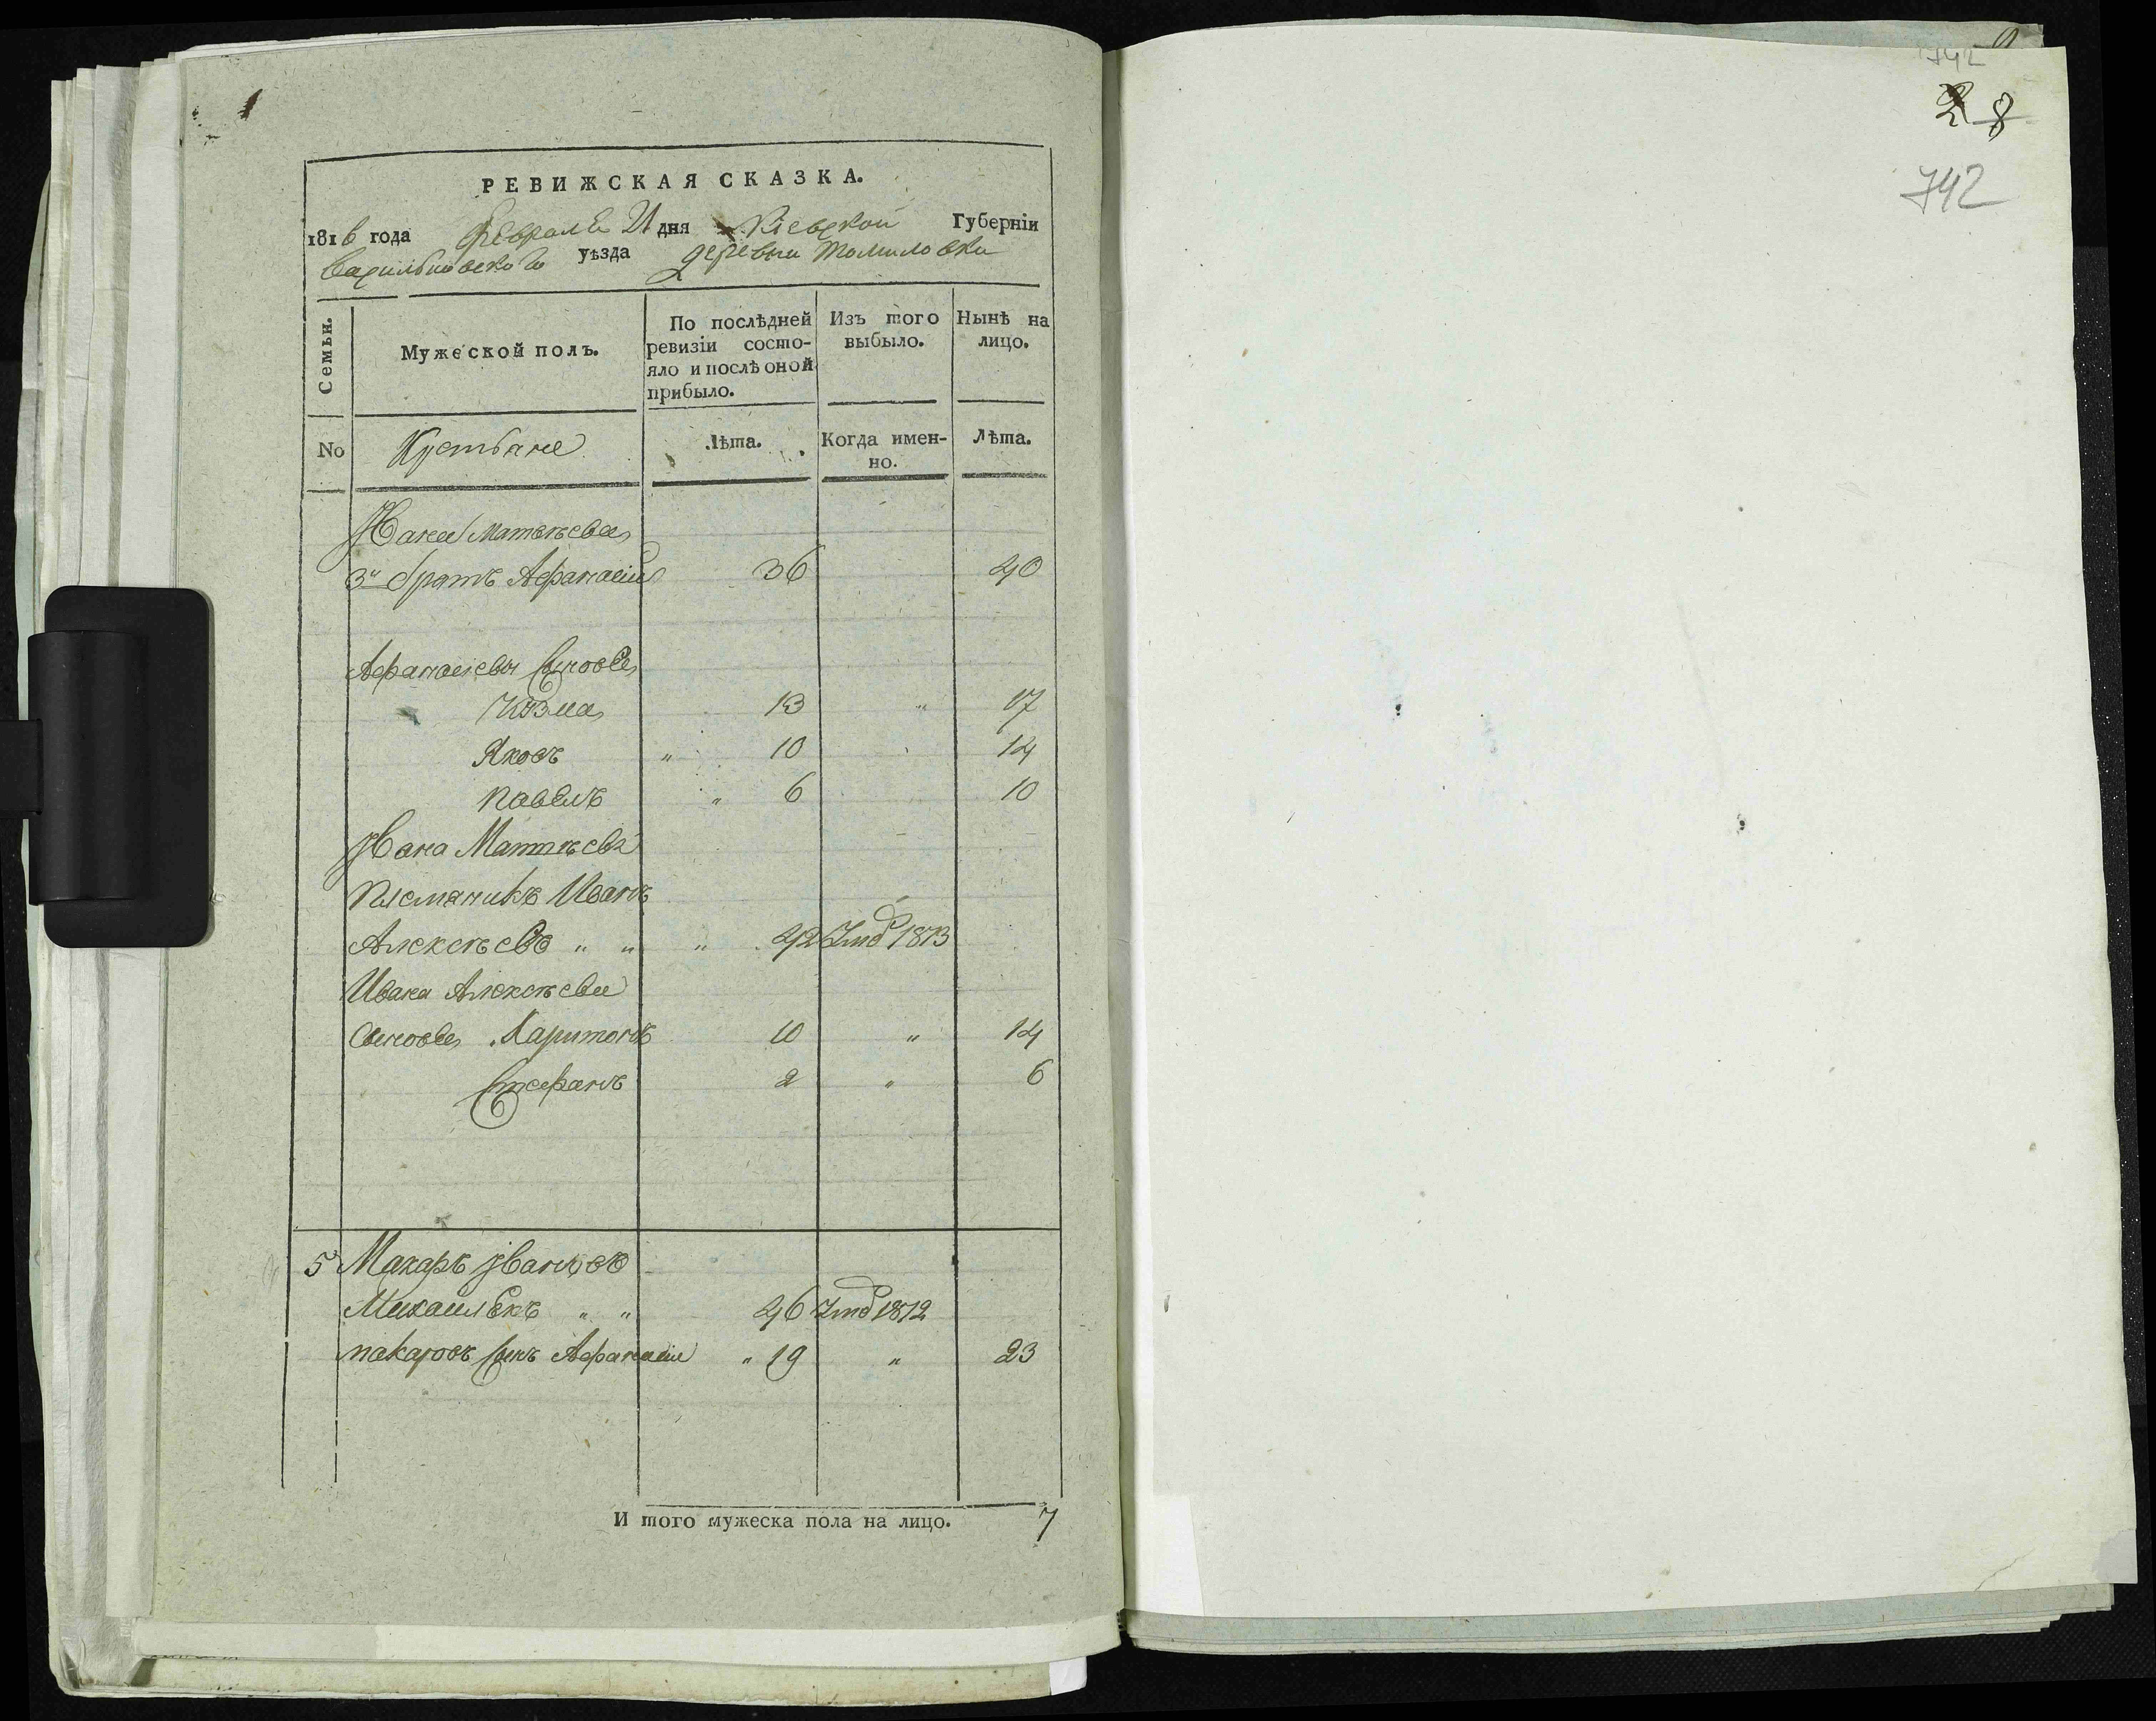 РЕВИЖСКАЯ СКАЗКА.
1816 года Февраля 21 дня Кіевской Губерніи
Васильковского уѣзда деревни Томиловки
Семьи. Мужеской полъ. По послѣдней ревизіи состояло и послѣ оной прибыло. Изъ того выбыло. Нынѣ на лицо.
No Крестьяне Лѣта. Когда именно. Лѣта.
Ивана Матвѣева
3й братъ Афанасій 36 40
Афанасіевы Сыновья
Козма 13 " 17
Яковъ " 10 14
Павелъ " 6 10
Ивана Матвѣева
племяникъ Иванъ
Алексѣевъ " " " 42 Умд 1813
Ивана Алексѣева
Сыновья Харитонъ 10 " 14
Стефанъ 2 " 6
5 Макаръ Ивановъ
" " 46 Умд 1812
макаровъ Сынъ Афанасій " 19 " 23
И того мужеска пола на лицо. 7
742
2 8
742